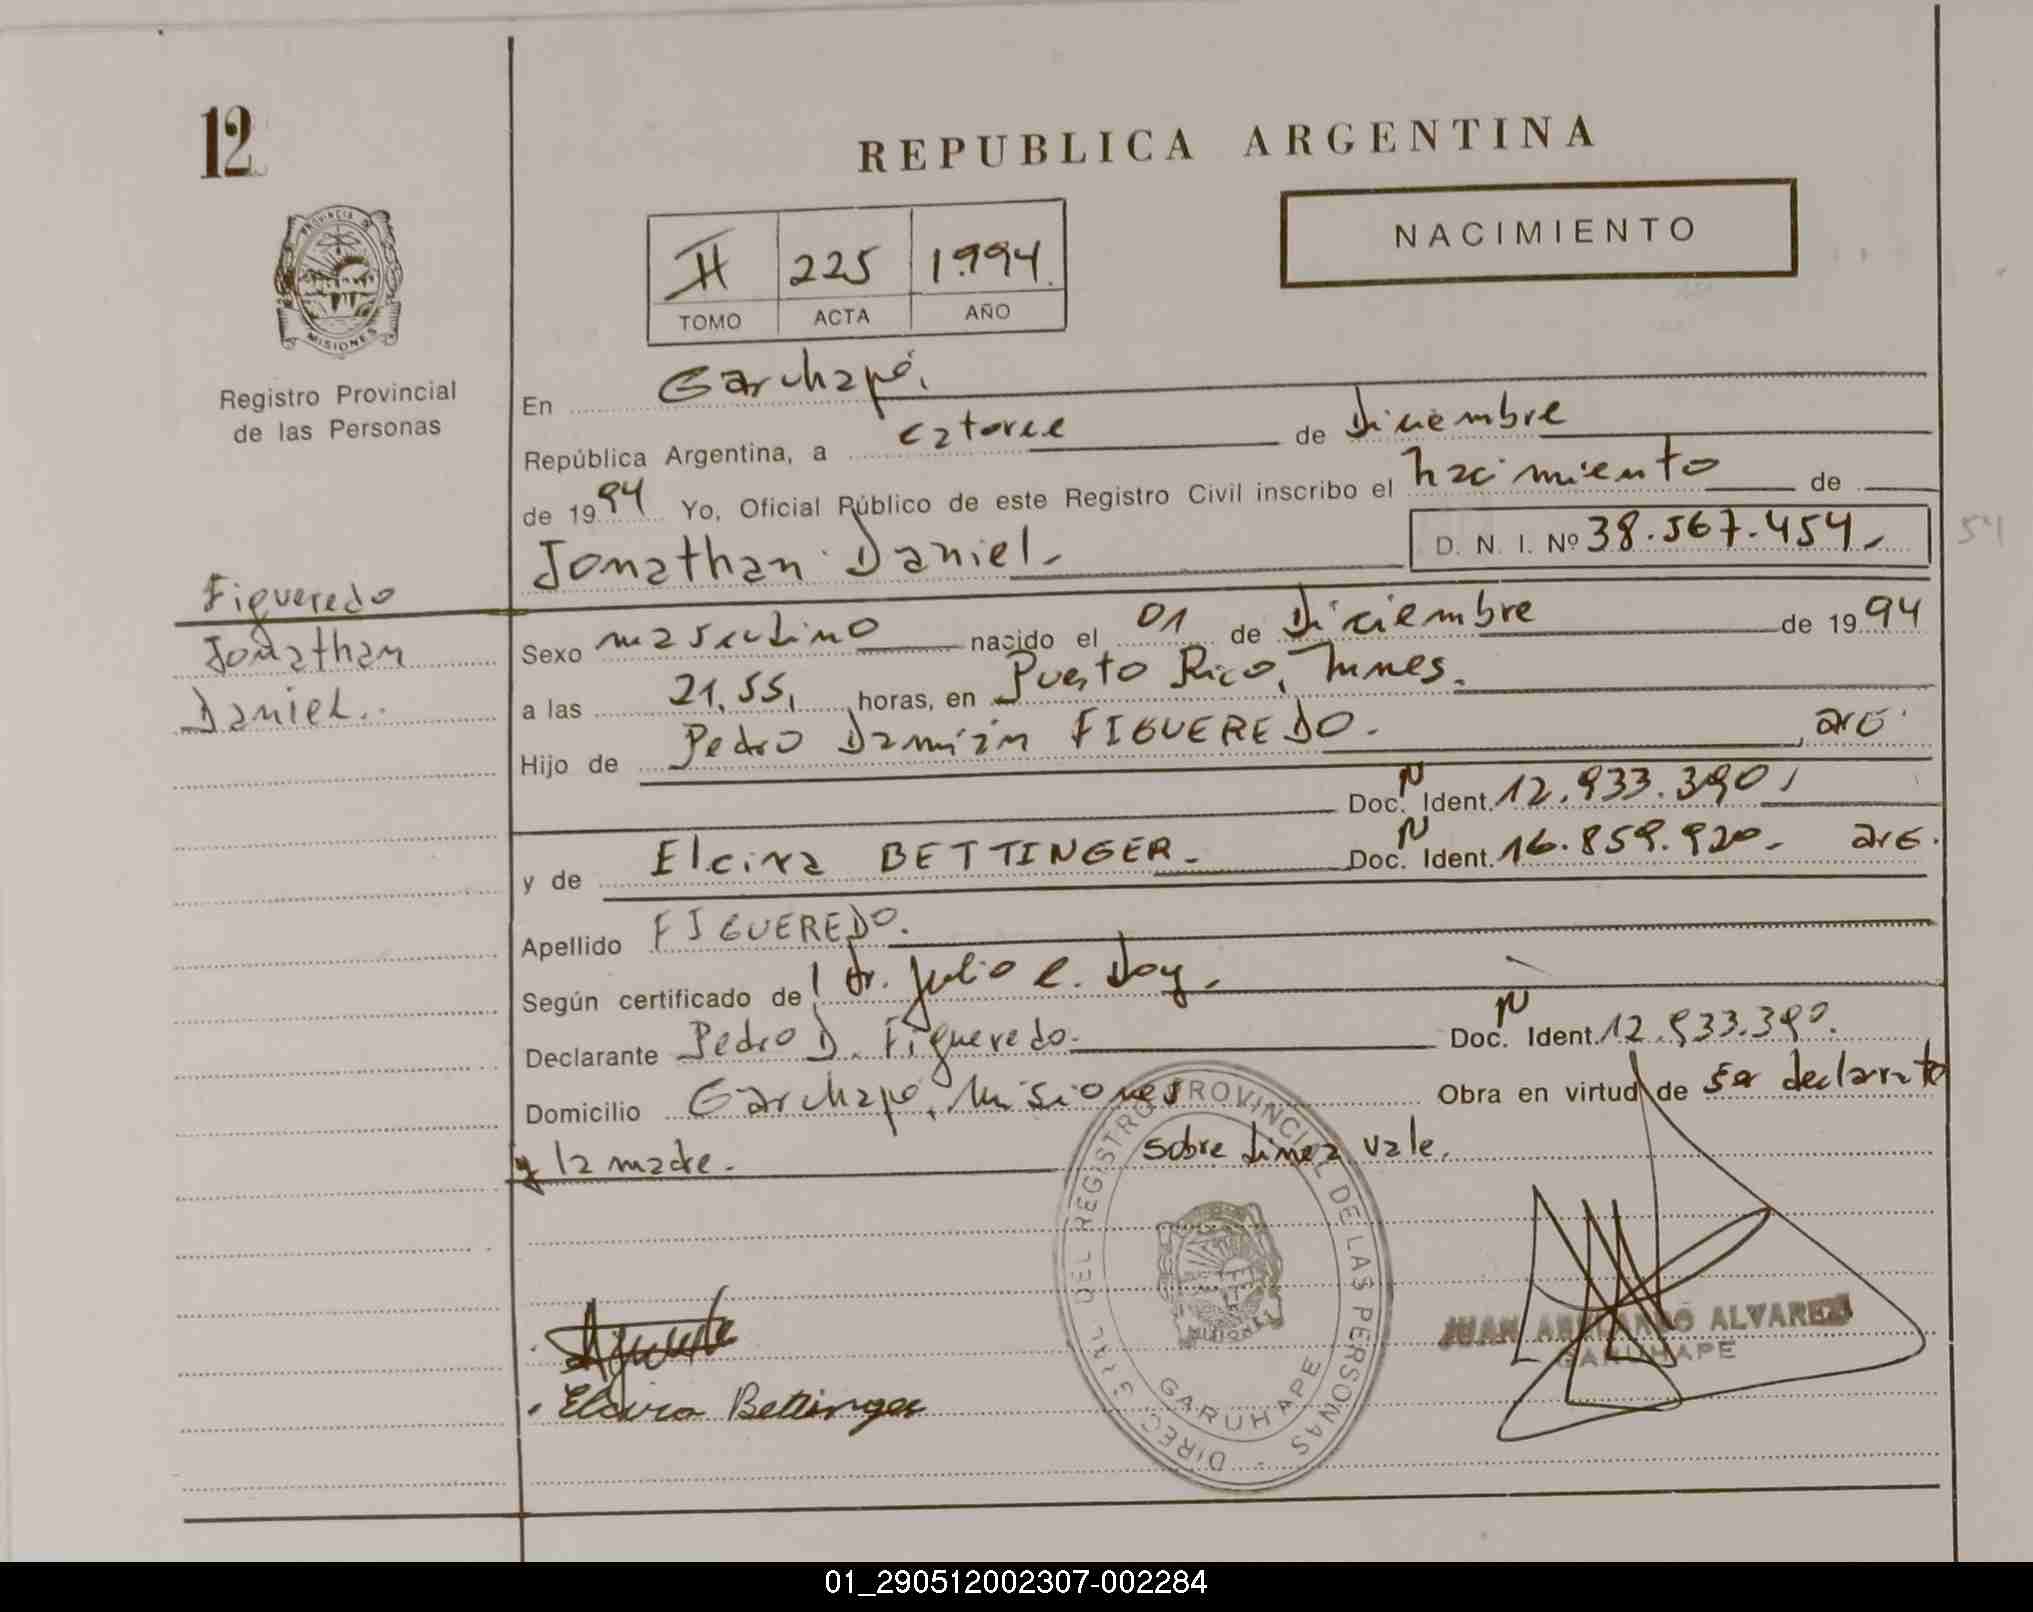 12
REPUBLICA ARGENTINA
NACIMIENTO
II 225 1994
TOMO ACTA AÑO
PROVINCIA DE MISIONES
Registro Provincial
de las Personas
En Garuhapé.
República Argentina, a catorce de Diciembre
de 1994 Yo, Oficial Público de este Registro Civil inscribo el nacimiento de
Jonathan Daniel. D. N. I. Nº 38.567.454.
54
Figueredo
Jonathan
Daniel.
Sexo masculino nacido el 01 de Diciembre de 1994
a las 21,55, horas, en Puerto Rico, Mnes.
Hijo de Pedro Damián FIGUEREDO. arg.
Doc. N Ident. 12.933.390,
y de Elcira BETTINGER. Doc. N Ident. 16.859.920. arg.
Apellido FIGUEREDO.
Según certificado del Dr. Julio C.
Declarante Pedro D. Figueredo. Doc. N Ident. 12.933.390.
Domicilio Garuhapé, Misiones Obra en virtud de ser declarante
y la madre. sobre linea vale.
DIREC. GRAL. DEL REGISTRO PROVINCIAL DE LAS PERSONAS
MISIONES
GARUHAPE
JUAN ALVAREZ
GARUHAPE
Elcira Bettinger
01_290512002307-002284